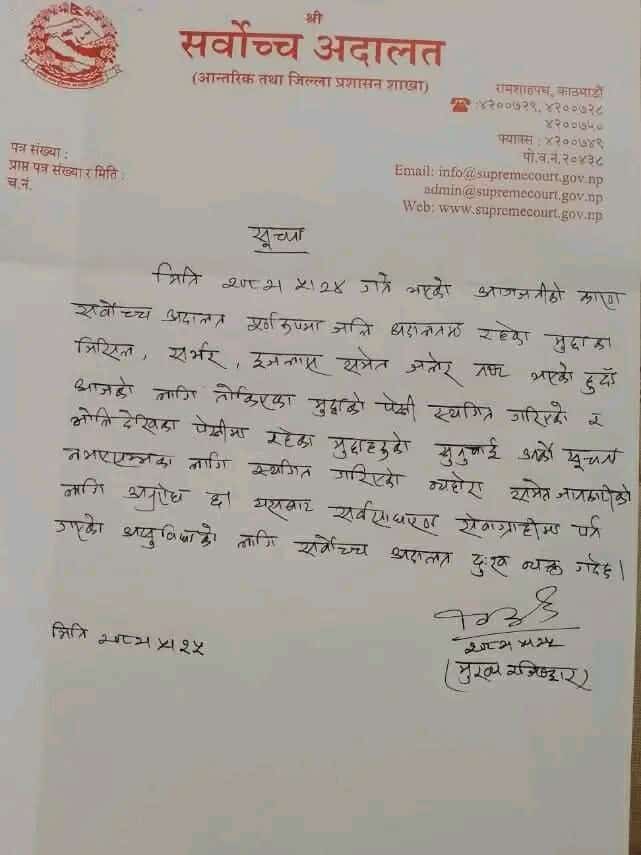 श्री
सर्वोच्च अदालत
(आन्तरिक तथा जिल्ला प्रशासन शाखा)
रामशाहपथ, काठमाडौं
☎ : ४२००७२९, ४२००७२८
४२००७५०
फ्याक्स : ४२००७४९
पो.व.नं. २०४३८
Email: info@supremecourt.gov.np
admin@supremecourt.gov.np
Web: www.supremecourt.gov.np
पत्र संख्या :
प्राप्त पत्र संख्या र मिति :
च.नं.
सूचना
मिति २०८२।५।२४ गते भएको आगजनीको कारण
सर्वोच्च अदालत पूर्णरूपमा जलि अदालतमा रहेका मुद्दाका
मिसिल, सर्भर, इजलास समेत जलेर नष्ट भएको हुदाँ
आजको लागि तोकिएका मुद्दाको पेशी स्थगित गरिएको र
भोलि देखिका पेशीमा रहेका मुद्दाहरुको सुनुवाई अर्को सूचना
नभएसम्मका लागि स्थगित गरिएको व्यहोरा समेत जानकारीको
लागि अनुरोध छ। यसबाट सर्वसाधारण सेवाग्राहीमा पर्न
गएको असुविधाको लागि सर्वोच्च अदालत दुःख व्यक्त गर्दछ।
मिति २०८२।५।२५
२०८२।५।२५
(मुख्य रजिष्ट्रार)